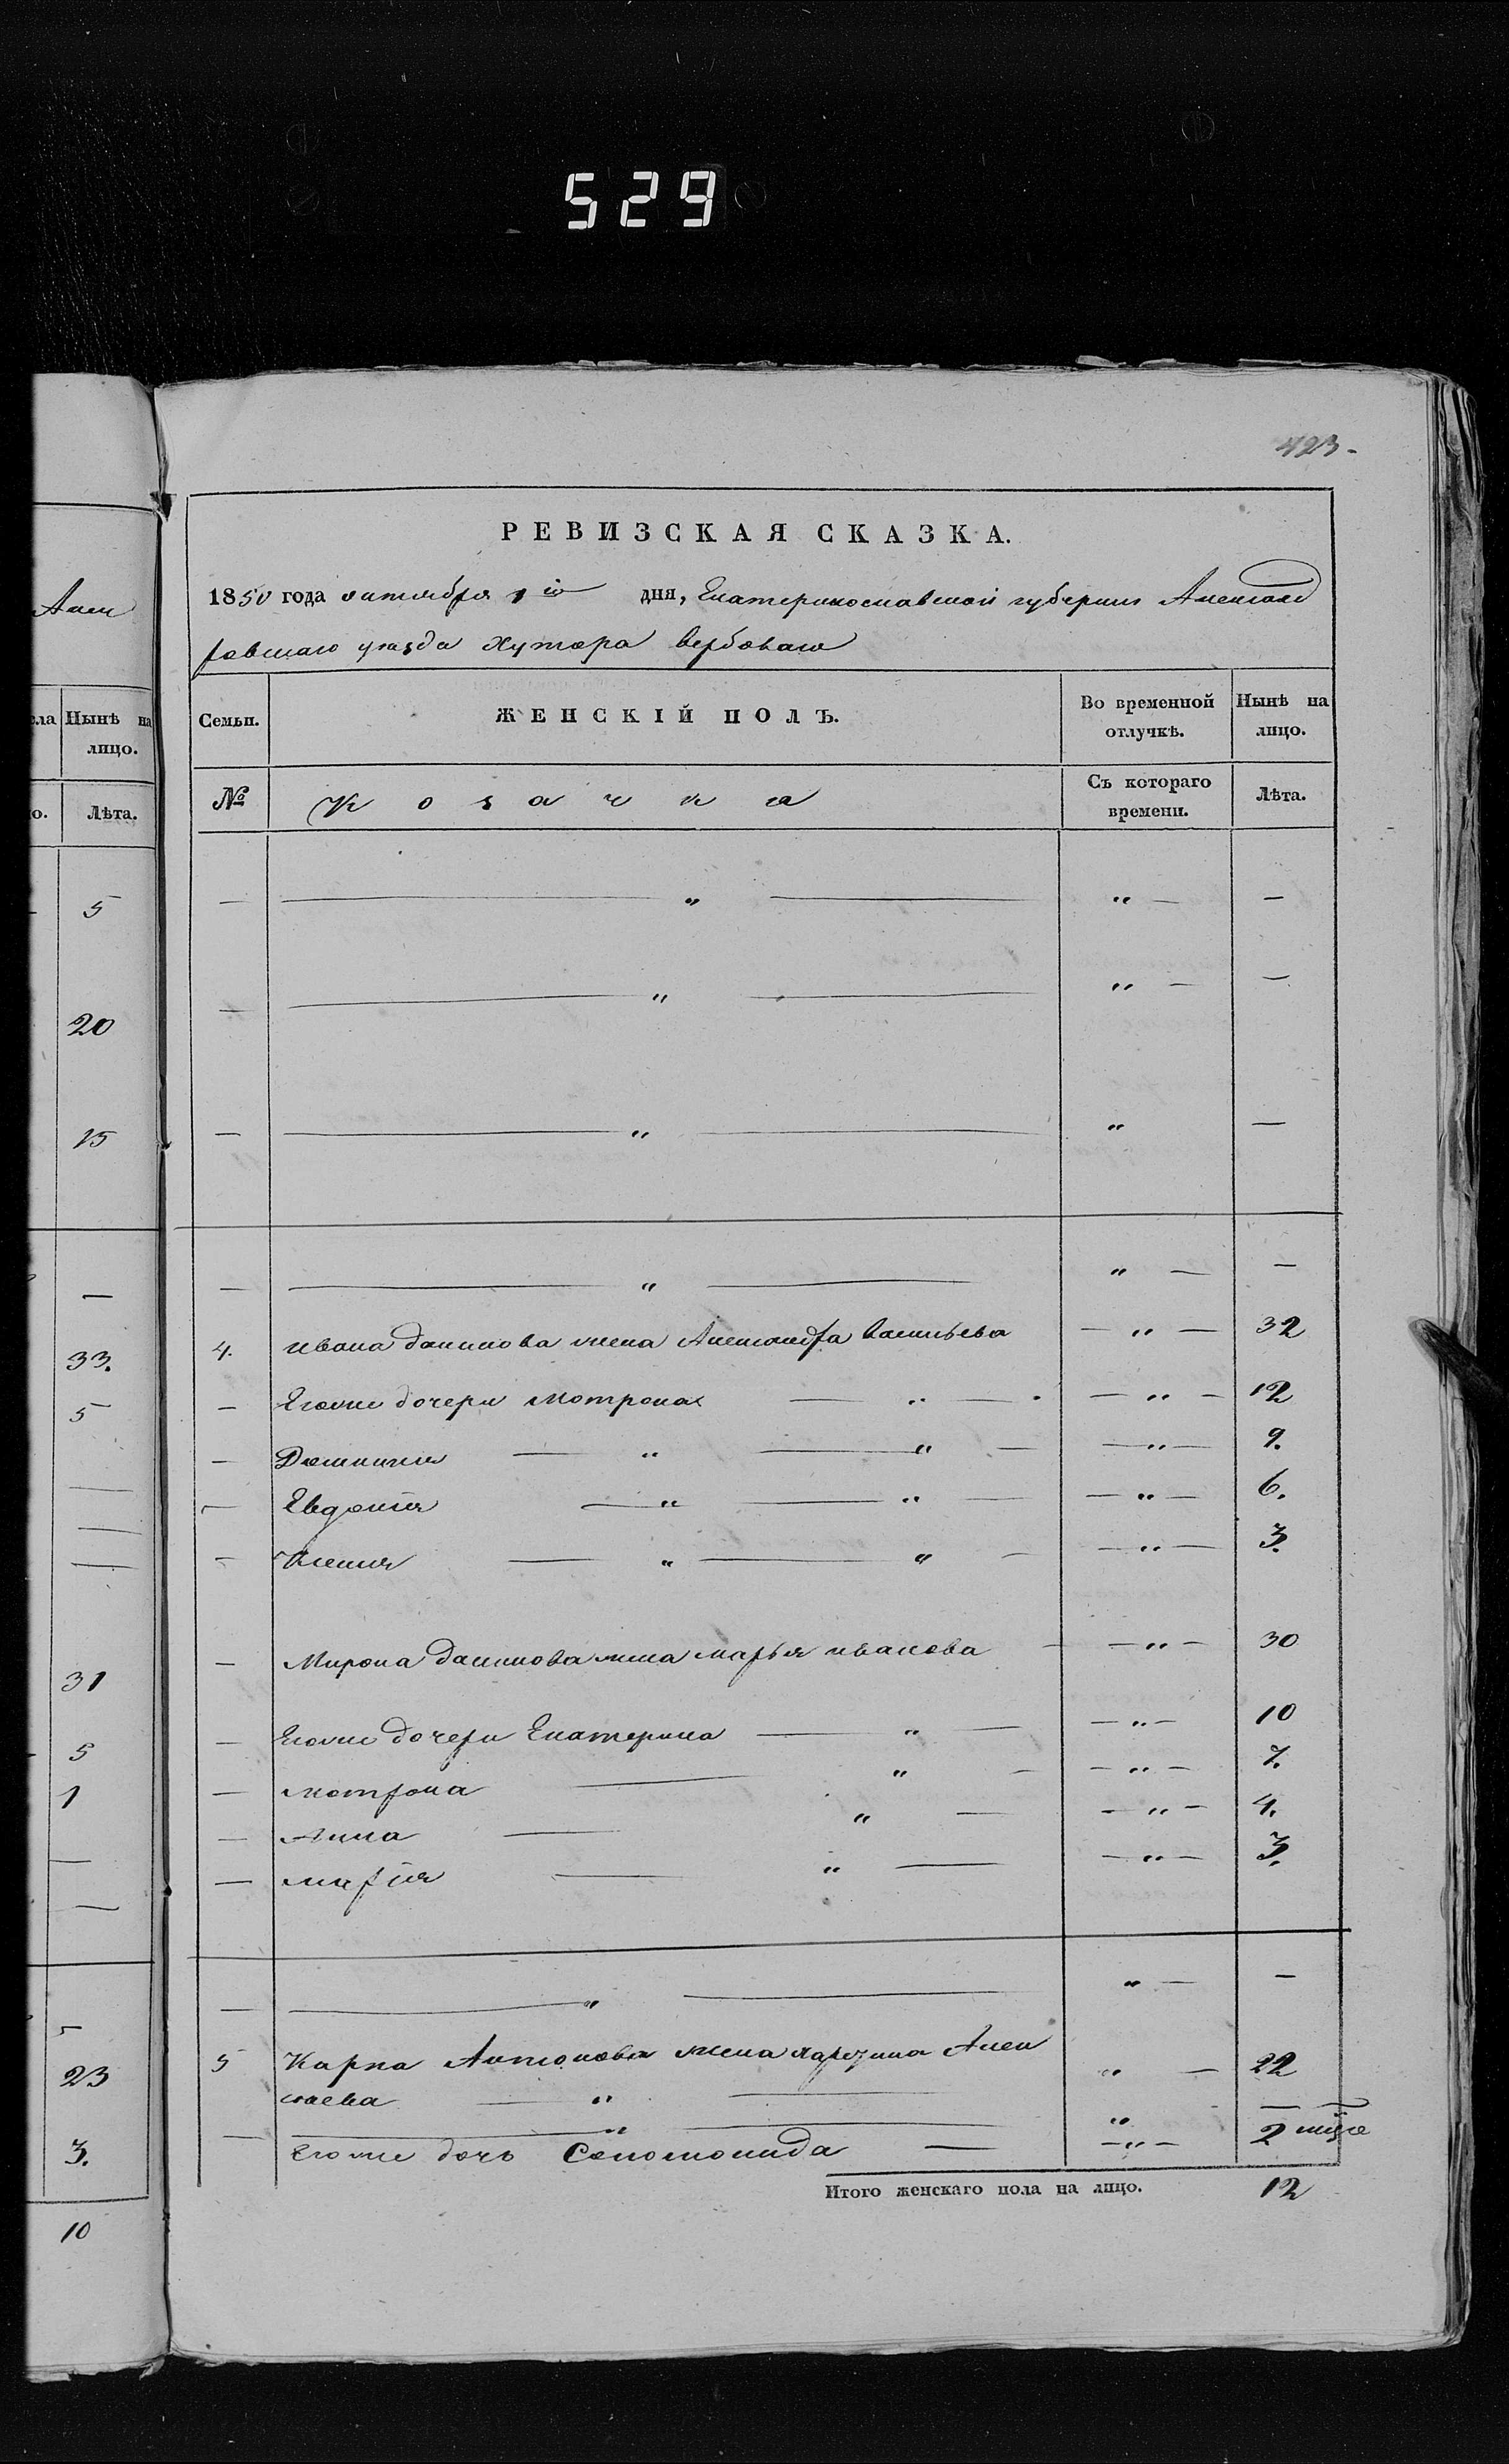 529
423.
РЕВИЗСКАЯ СКАЗКА.
1850 года октября 1го дня, Екатеринославской губернии Александ
ровскаго уезда Хутора Вербоваго
Алек
сла Нынѣ на лицо.
о. Лѣта.
5
20
15
—
33.
5
31
5
1
23
3.
10
Семьи. ЖЕНСКІЙ ПОЛЪ. Во временной отлучкѣ. Нынѣ на лицо.
№ Козачка Съ котораго времени. Лѣта.
— — „ — „ — —
— — „ — „ — —
— — „ — „ —
— — „ — „ — —
4. Ивана Данилова жена Александра Васильева — „ — 32
— Егоже дочери Мотрона — „ — — „ — 12
— Домникия — „ — „ — — „ — 9.
— Евдокия — „ — „ — — „ — 6.
— Ксения — „ — „ — — „ — 3.
— Мирона Данилова жена Марья Иванова — — „ — 30
— Егоже дочери Екатерина — „ — — „ — 10
— Мотрона — „ — — „ — 7.
— Анна — „ — — „ — 4.
— Марія — „ — — „ — 3.
— — „ — „ — —
5 Карпа Антонова жена Алек „ — 22
сѣева — „ —
— — „ — „ —
Егоже дочь Соломонида — — „ — 2
Итого женскаго пола на лицо. 12